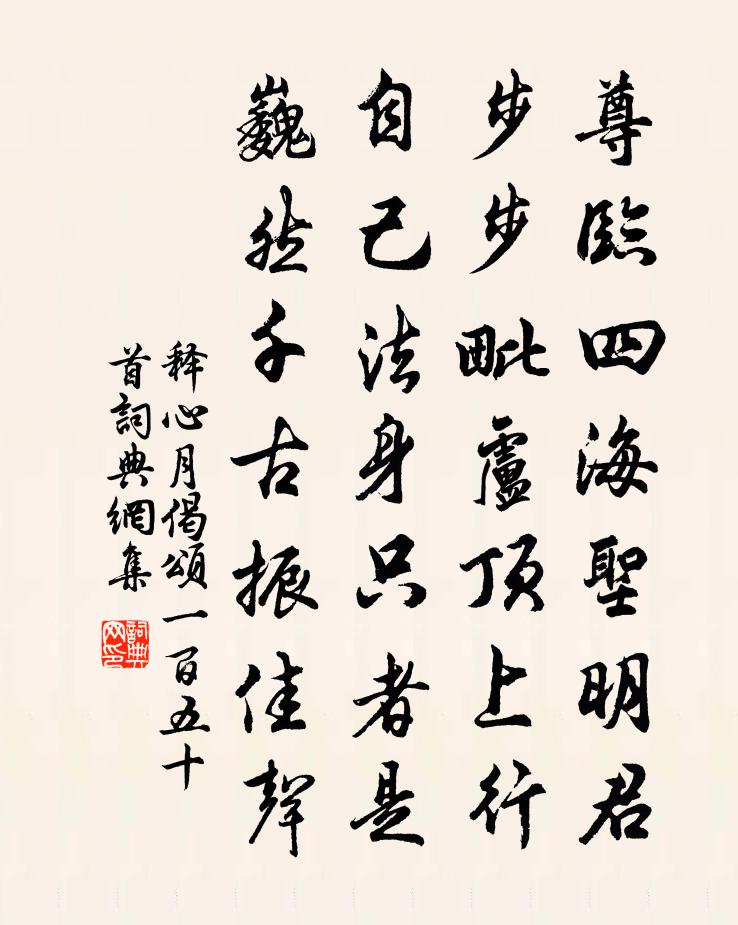 尊臨四海聖明君
步步毗盧頂上行
自己法身只者是
巍然千古振佳聲
释心月偈頌一百五十
首詞典網集
詞典网印